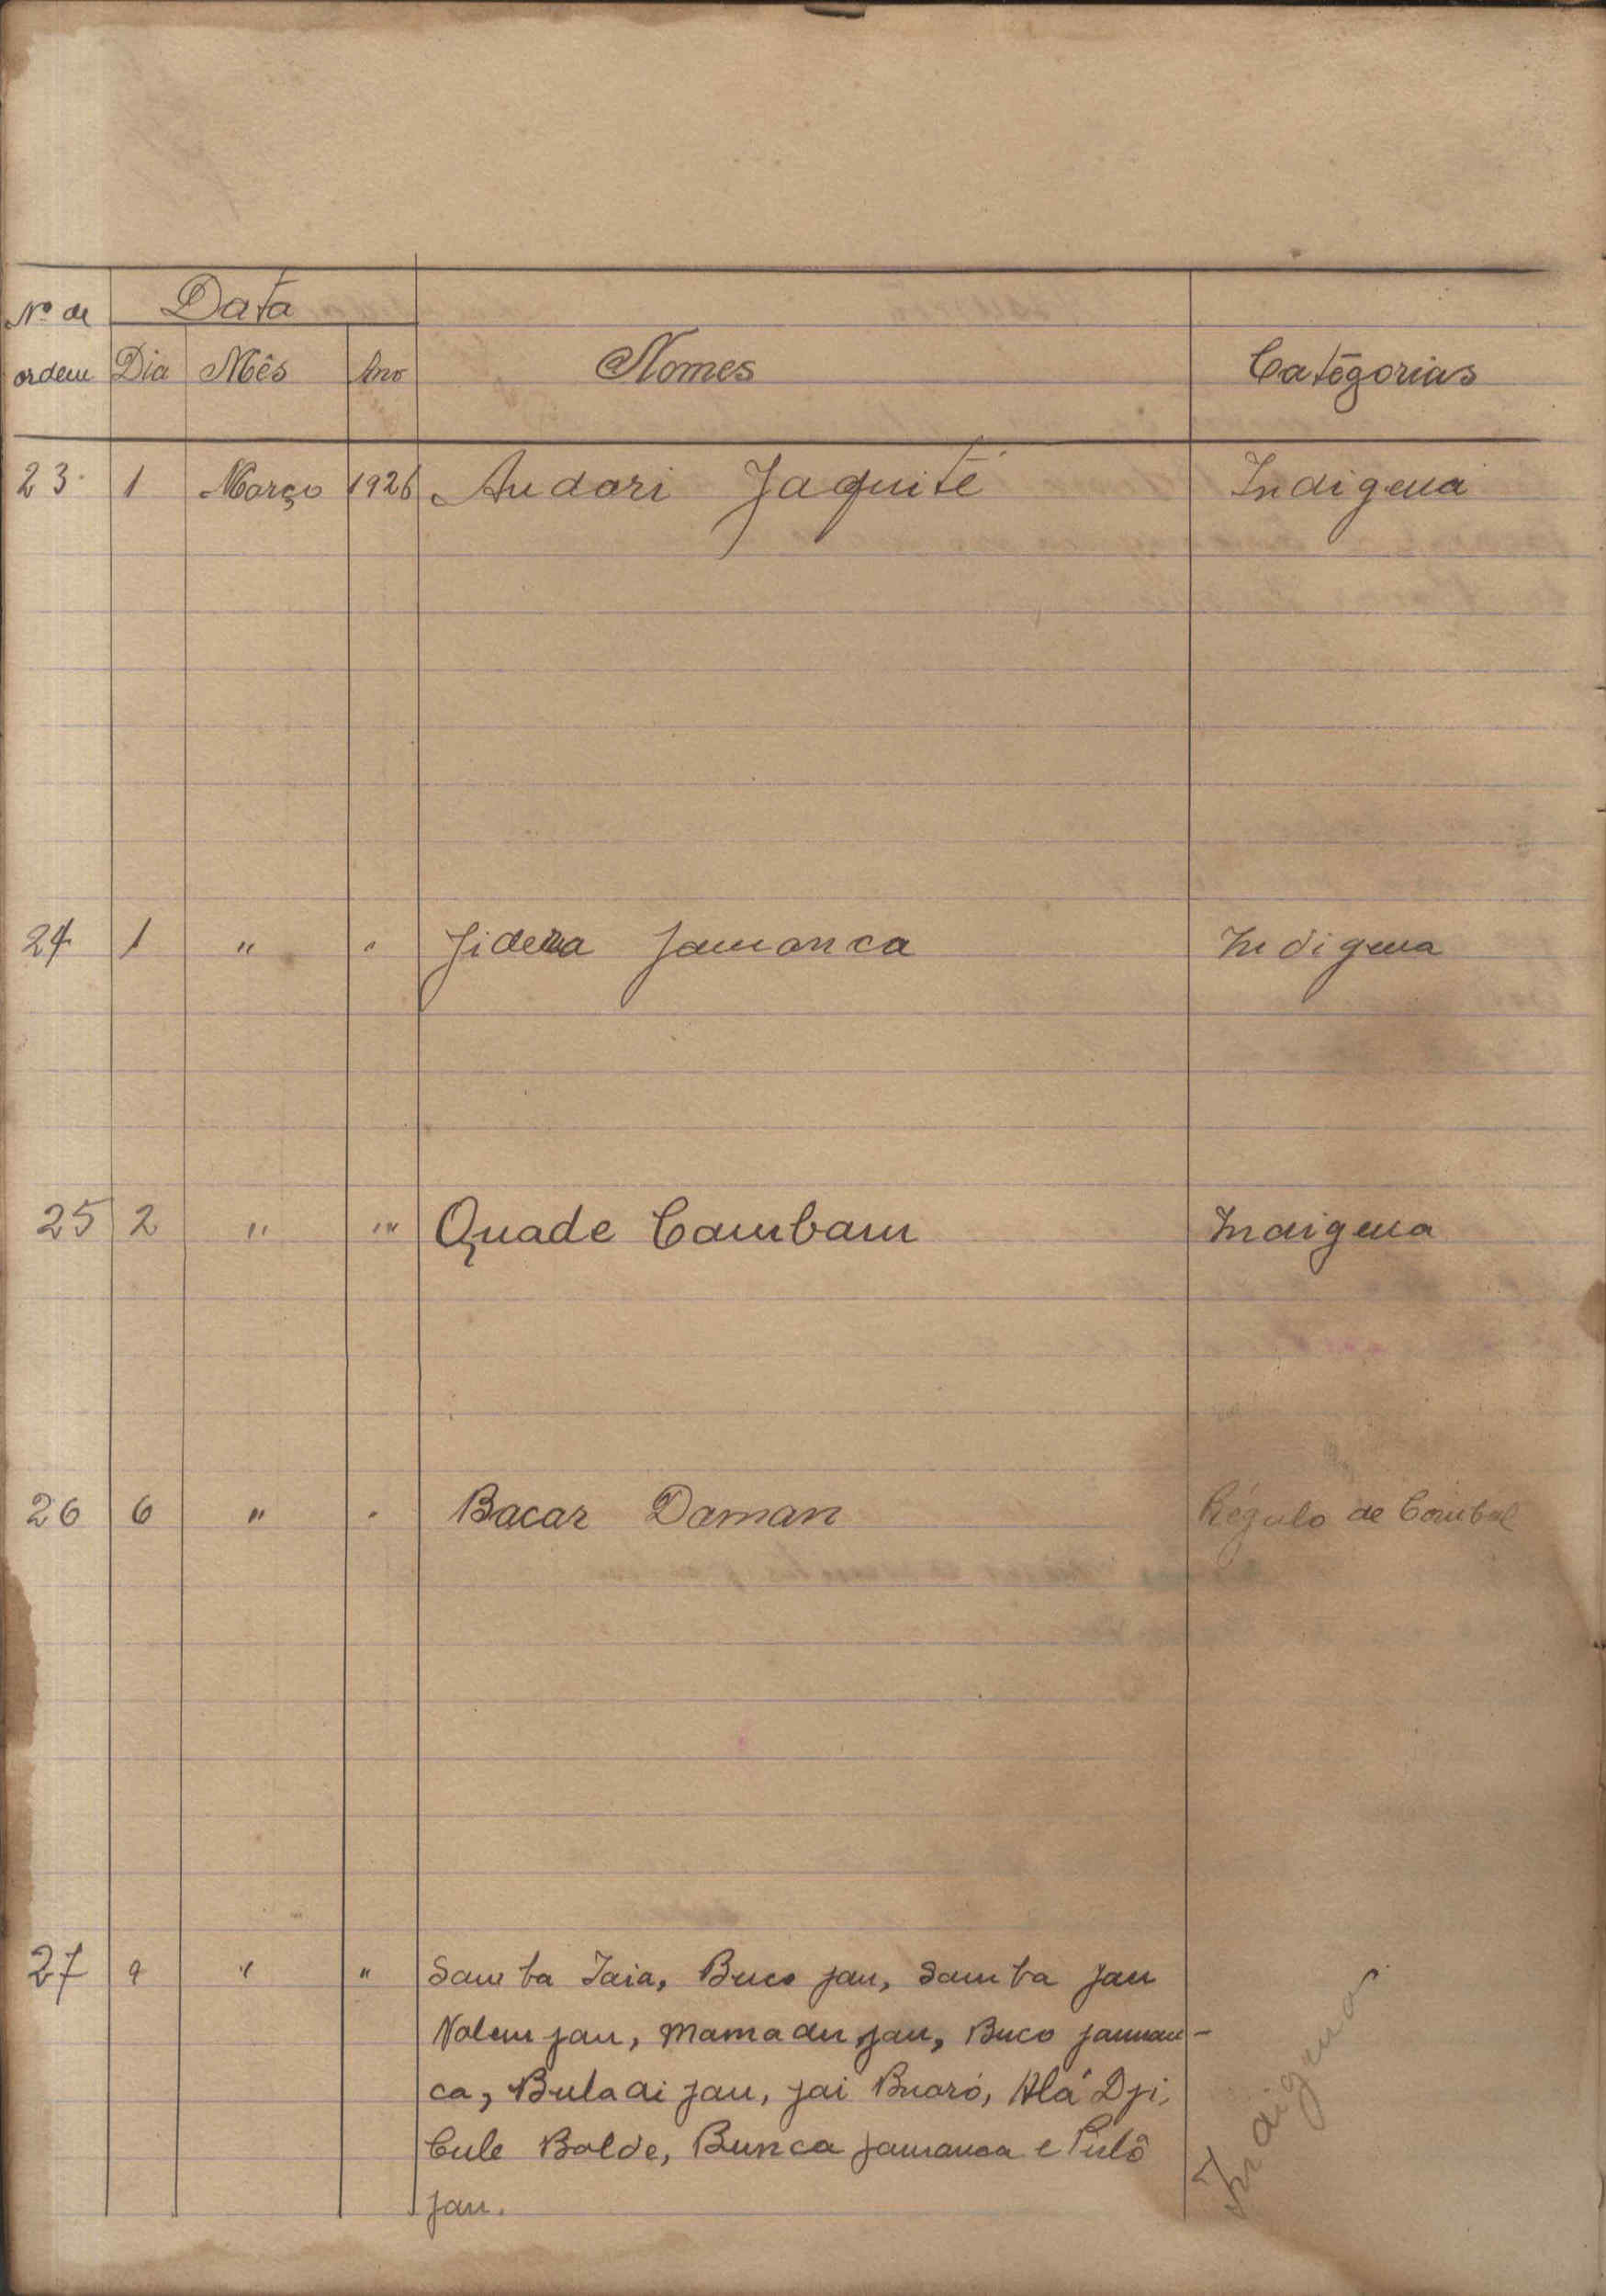 Nº de Data
ordem Dia Mês Ano Nomes Categorias
23 1 Março 1926 Audari Jaquité Indigena
24 1 " " Jidera Jamanca Indigena
25 2 " " Quade Cambam Indigena
26 6 " " Bacar Daman Régulo de Cambal
27 9 " " Samba Iaia, Buco Jau, Samba Jau
Nalem Jau, Mamadu Jau, Buco Jamau-
ca, Buladi Jau, Jai Buaró, Alá Dji,
Cule Balde, Bunca Jamanca e Pulô
Jau.
Indigenas